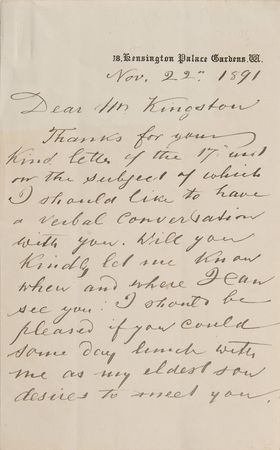 18, Kensington Palace Gardens, W.
Nov. 22" 1891
Dear Mr Kingston
Thanks for your
kind letter of the 17" inst
on the subject of which
I should like to have
a verbal conversation
with you. Will you
kindly let me know
when and where I can
see you? I should be
pleased if you could
some day lunch with
me as my eldest son
desires to meet you.